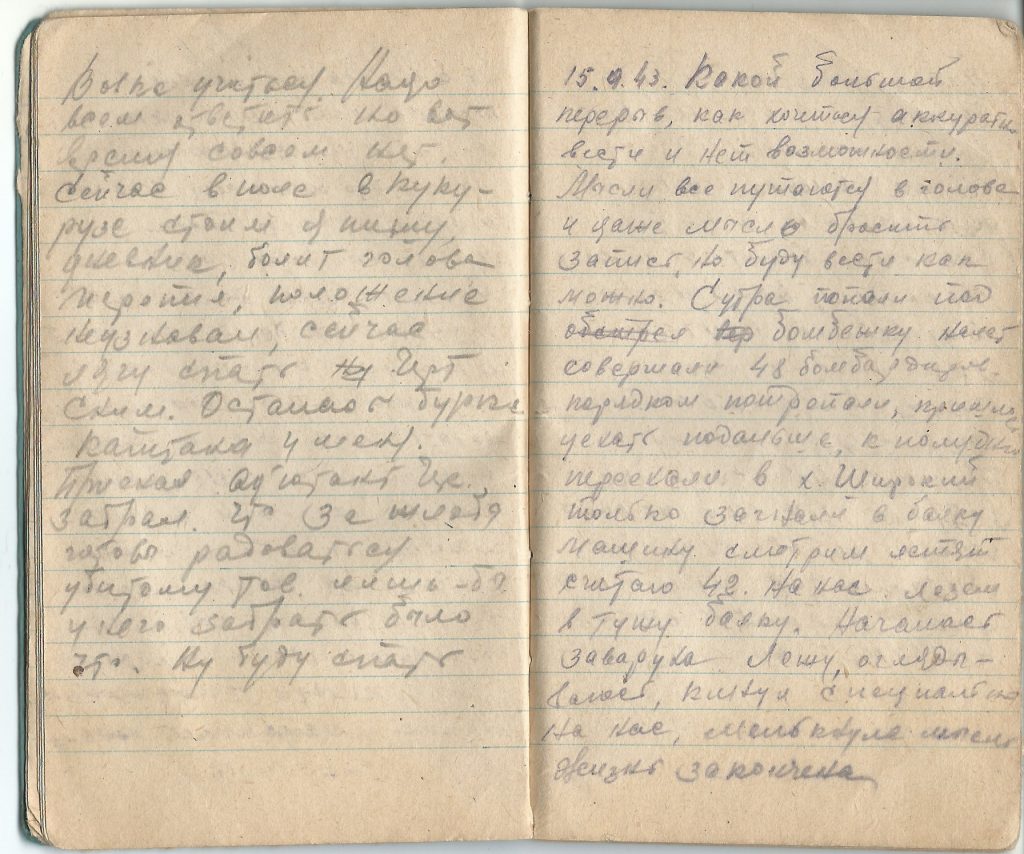 учиться Надо
всем ответить но вот
время совсем нет.
Сейчас в поле в куку-
рузе стоим я пишу
дневник, болит голова
положение
сейчас
лягу спать
с ним. Осталась
капитана у меня.
Приехал адъютант
забрал. Что за
готовы радоваться
убитому тов. лишь-бы
у него забрать было
что. Ну буду спать
15.9.43. Какой большой
перерыв, как хочется аккуратно
вести и нет возможности.
Мысли все путаются в голове
и даже мысль бросить
запись, но буду вести как
можно. С утра попали под
обстрел бомбежку налет
совершали 48
порядком потрепали, пришлось
уехать подальше, к полудню
переехали в х. Широкий
только загнали в балку
машину смотрим летят
считаю 42. На нас лезем
в туже балку. Началась
заваруха Лежу, огляды-
ваюсь, специально
на нас, мелькнула мысль
жизнь закончена